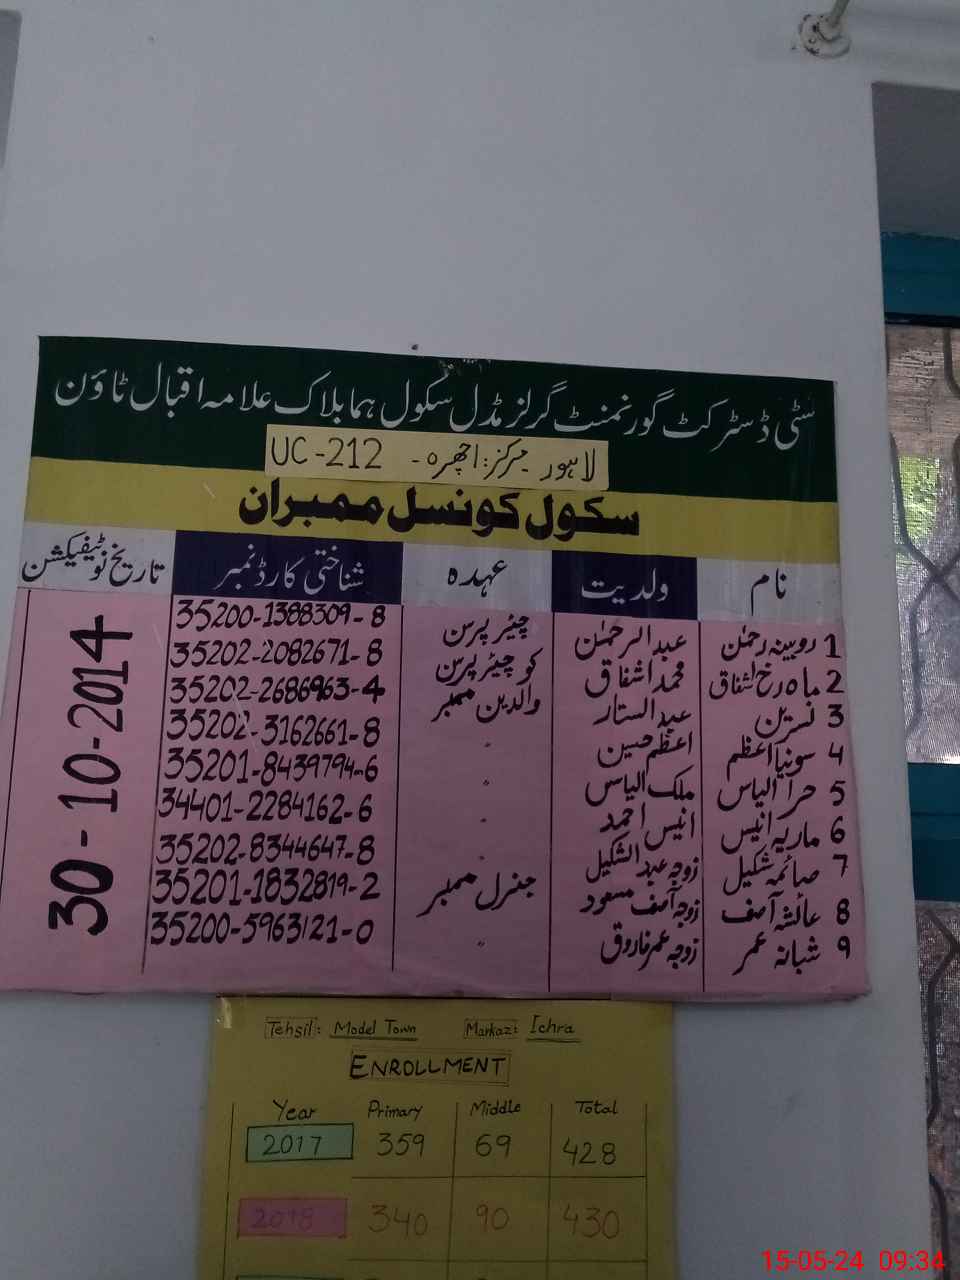 سٹی ڈسٹرکٹ گورنمنٹ گرلز مڈل سکول ہما بلاک علامہ اقبال ٹاؤن
لاہور مرکز: اچھرہ - UC-212
سکول کونسل ممبران
نام ولدیت عہدہ شناختی کارڈ نمبر تاریخ نوٹیفیکشن
1 روبینہ رحمٰن عبدالرحمٰن چیئر پرسن 35200-1388309-8
2 ماہ رخ اشفاق محمد اشفاق کو چیئر پرسن 35202-2082671-8
3 نسرین عبدالستار والدین ممبر 35202-2686963-4
4 سونیا اعظم اعظم حسین " 35202-3162661-8
5 حرا الیاس ملک الیاس " 35201-8439794-6
6 ماریہ انیس انیس احمد " 34401-2284162-6
7 صائمہ شکیل زوجہ عبدالشکیل " 35202-8344647-8
8 عائشہ آصف زوجہ آصف مسعود جنرل ممبر 35201-1832819-2
9 شبانہ عمر زوجہ عمر فاروق " 35200-5963121-0
30-10-2014
Tehsil: Model Town Markaz: Ichra
ENROLLMENT
Year Primary Middle Total
2017 359 69 428
2018 340 90 430
15-05-24 09:34